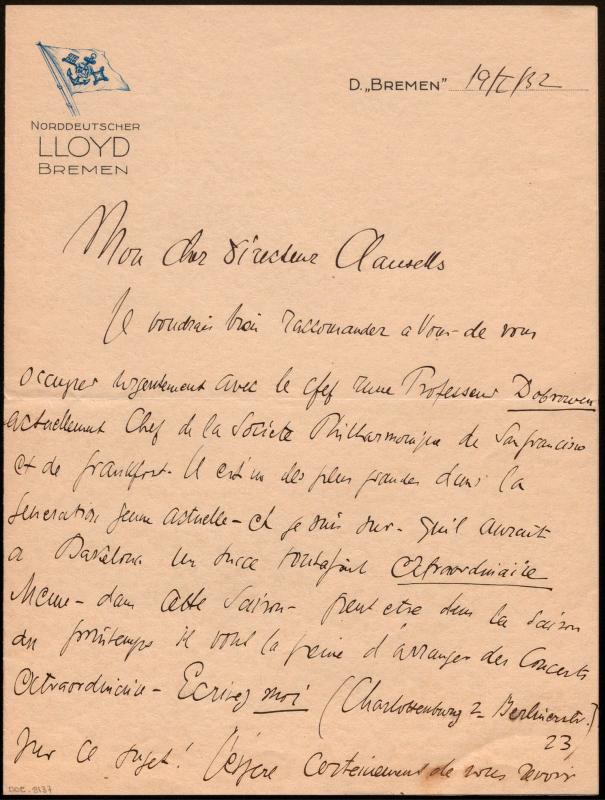 NORDDEUTSCHER
LLOYD
BREMEN
D. „BREMEN" 19/I/32
Mon cher Directeur Clausells
Je voudrais bien raccomander a Vous - de vous
occuper urgentement avec le Professeur Dobrowen
actuellement Chef de la Societe Philharmonique de San francisco
et de frankfort - Il est un des plus grandes dans la
generation jeune actuelle - et je suis sur - qu'il aurait
a Barcelona un succe toutafait extraordinaire
Meme - dans cette Saison - peut etre dans la saison
du printemps il vout la peine d'arranger des Concerts
extraordinaire - Ecrivez moi (Charlottenburg 2 - Berlinerstr.
23)
sur ce sujet! J'espere certeinement de vous revoir
DOC. 8137